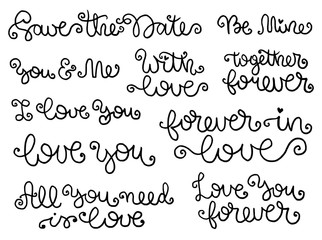 Save the Date
Be Mine
You & Me
With
love
together
forever
I love You
forever in
love
love you
All You need
is love
Love You
forever